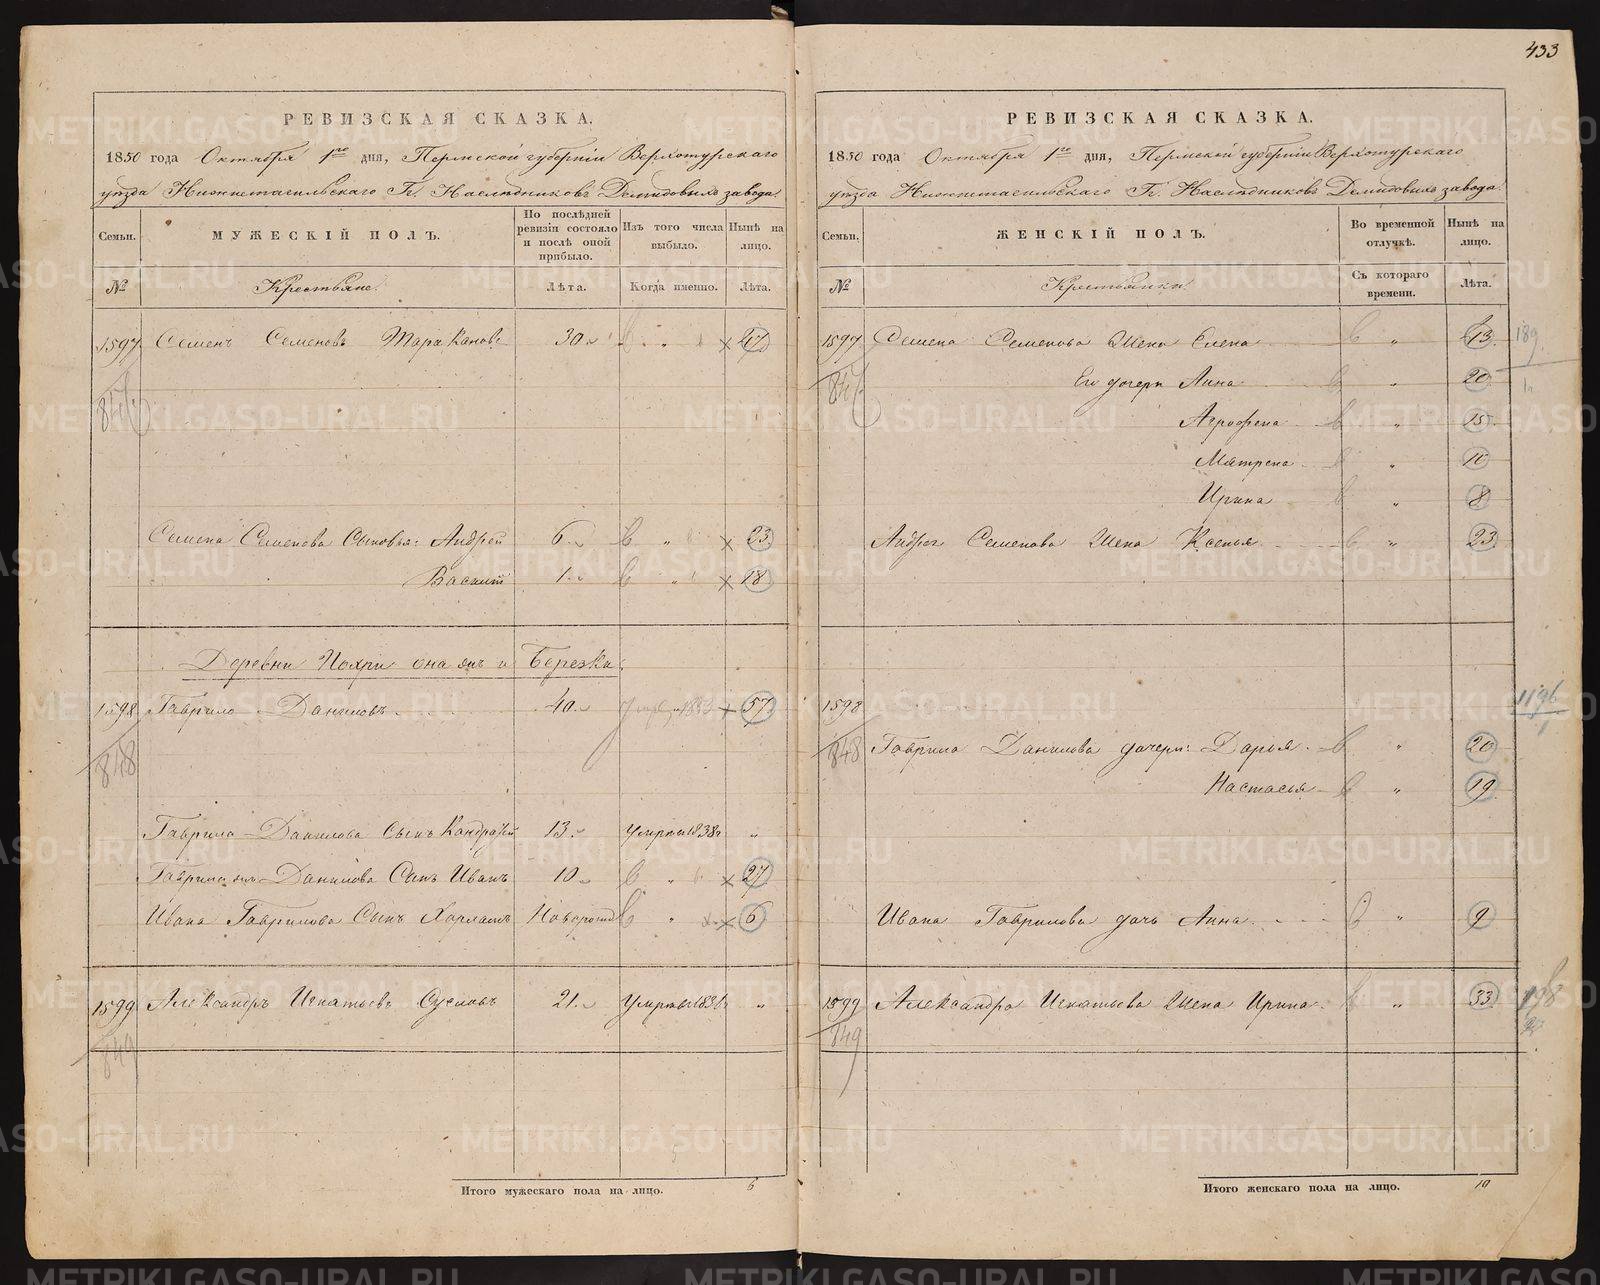 433
РЕВИЗСКАЯ СКАЗКА.
1850 года Октября 1го дня, Пермской губернiи Верхотурскаго
уѣзда Нижнетагильскаго Гг. Наслѣдниковъ Демидовыхъ завода
Семьи.
МУЖЕСКIЙ ПОЛЪ.
По послѣдней ревизiи состояло и послѣ оной прибыло.
Изъ того числа выбыло.
Нынѣ на лицо.
№
Крестьяне.
Лѣта.
Когда именно.
Лѣта.
1597 Семенъ Семеновъ Таракановъ 30 " × 47
847
Семена Семенова Сыновья: Андрей 6 " × 23
Василiй 1 " × 18
Деревни Березки
1598 Гаврило Даниловъ 40 × 57
848
Гаврила Данилова Сынъ Кандратiй 13 Умре 1838 "
Гаврила Данилова Сынъ Иванъ 10 " × 27
Ивана Гаврилова Сынъ Харлампъ Новорожд " × 6
1599 Александръ Игнатьевъ Сусловъ 21 Умре 1836 "
849
Итого мужескаго пола на лицо. 6
РЕВИЗСКАЯ СКАЗКА.
1850 года Октября 1го дня, Пермской губернiи Верхотурскаго
уѣзда Нижнетагильскаго Гг. Наслѣдниковъ Демидовыхъ завода
Семьи.
ЖЕНСКIЙ ПОЛЪ.
Во временной отлучкѣ.
Нынѣ на лицо.
№
Крестьянки
Съ котораго времени.
Лѣта.
1597 Семена Семенова Жена Елена " 43
847 Его дочери Анна " 20
Агрофена " 15
Матрена " 10
Ирина " 8
Андрея Семенова Жена Ксенья " 23
1598
848 Гаврила Данилова дочери: Дарья " 20
Настасья " 19
Ивана Гаврилова дочь Анна " 9
1599 Александра Игнатьева Жена Ирина " 33
849
Итого женскаго пола на лицо. 10
METRIKI.GASO-URAL.RU